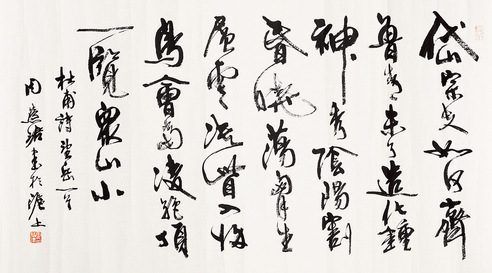 岱宗夫如何齊
魯青未了造化鍾
神秀陰陽割
昏曉蕩胸生
層雲決眥入歸
鳥會當凌絕頂
一覽衆山小
杜甫詩望岳一首
周慧珺書於滬上